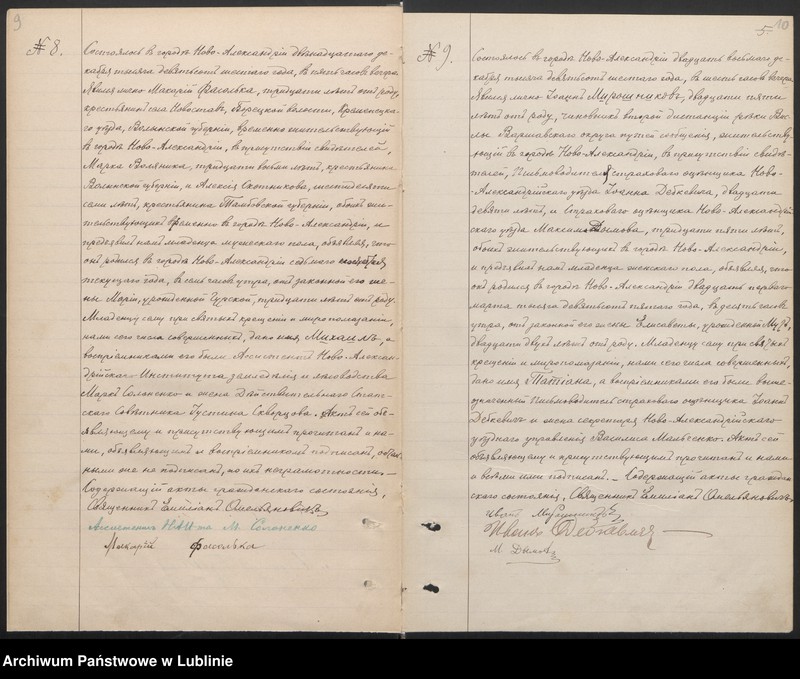 9
№ 8.
Состоялось въ городѣ Ново-Александріи двѣнадцатаго де-
кабря тысяча девятьсотъ шестого года, въ пять часовъ вечера.
Явился лично Макарій Фасолька, тридцати лѣтъ отъ роду,
крестьянинъ села Новостава, волости, Кременецка-
го уѣзда, Волынской губерніи, временно жительствующій
въ городѣ Ново-Александріи, въ присутствіи свидѣтелей,
Марка тридцати восьми лѣтъ, крестьянина
Волынской губерніи, и Алексѣя Охотникова, шестидесяти
семи лѣтъ, крестьянина Тамбовской губерніи, обоихъ жи-
тельствующихъ временно въ городѣ Ново-Александріи, и
предъявилъ намъ младенца мужескаго пола, объявляя, что
онъ родился въ городѣ Ново-Александріи седьмого
текущаго года, въ семь часовъ утра, отъ законной его же-
ны Маріи, урожденной тридцати лѣтъ отъ роду.
Младенцу сему при святомъ крещеніи и миропомазаніи,
нами сего числа совершенномъ, дано имя Михаилъ, а
воспріемниками его были Ассистентъ Ново-Алексан-
дрійскаго Института земледѣлія и лѣсоводства
Маркъ Солоненко и жена Дѣйствительнаго Стат-
скаго Совѣтника Іустина Скворцова. Актъ сей объ-
являющему и присутствующимъ прочитанъ и на-
ми, объявляющимъ и воспріемникомъ подписанъ,
ными же не подписанъ, по ихъ неграмотности. —
Содержащій акты гражданскаго состоянія,
Священникъ Емиліанъ Омельяновичъ
Ассистентъ М. Солоненко
Макарій Фасолька
5. 10
№ 9.
Состоялось въ городѣ Ново-Александріи двадцать восьмаго де-
кабря тысяча девятьсотъ шестого года, въ шесть часовъ вечера.
Явился лично Іоаннъ Мирошниковъ, двадцати пяти
лѣтъ отъ роду, чиновникъ второй дистанціи рѣки Вис-
лы Варшавскаго округа путей сообщенія, жительству-
ющій въ городѣ Ново-Александріи, въ присутствіи свидѣ-
телей, Письмоводителя страхового оцѣнщика Ново-
-Александрійскаго уѣзда Іоанна Дебкевича, двадцати
девяти лѣтъ, и Страхового оцѣнщика Ново-Александрій-
скаго уѣзда Максима Дымова, тридцати пяти лѣтъ,
обоихъ жительствующихъ въ городѣ Ново-Александріи,
и предъявилъ намъ младенца женскаго пола, объявляя, что
онъ родился въ городѣ Ново-Александріи двадцать перваго
марта тысяча девятьсотъ пятаго года, въ десять часовъ
утра, отъ законной его жены Елисаветы, урожденной
двадцати двухъ лѣтъ отъ роду. Младенцу сему при святомъ
крещеніи и миропомазаніи, нами сего числа совершенномъ,
дано имя Татіана, а воспріемниками его были выше-
упомянутый Письмоводитель страхового оцѣнщика Іоаннъ
Дебкевичъ и жена секретаря Ново-Александрійскаго
уѣзднаго управленія Василиса Мальченко. Актъ сей
объявляющему и присутствующимъ прочитанъ и нами
и всѣми ими подписанъ. — Содержащій акты граждан-
скаго состоянія, Священникъ Емиліанъ Омельяновичъ
Иванъ Мирошниковъ
Иванъ Дебкевичъ
М. Дымовъ
Archiwum Państwowe w Lublinie